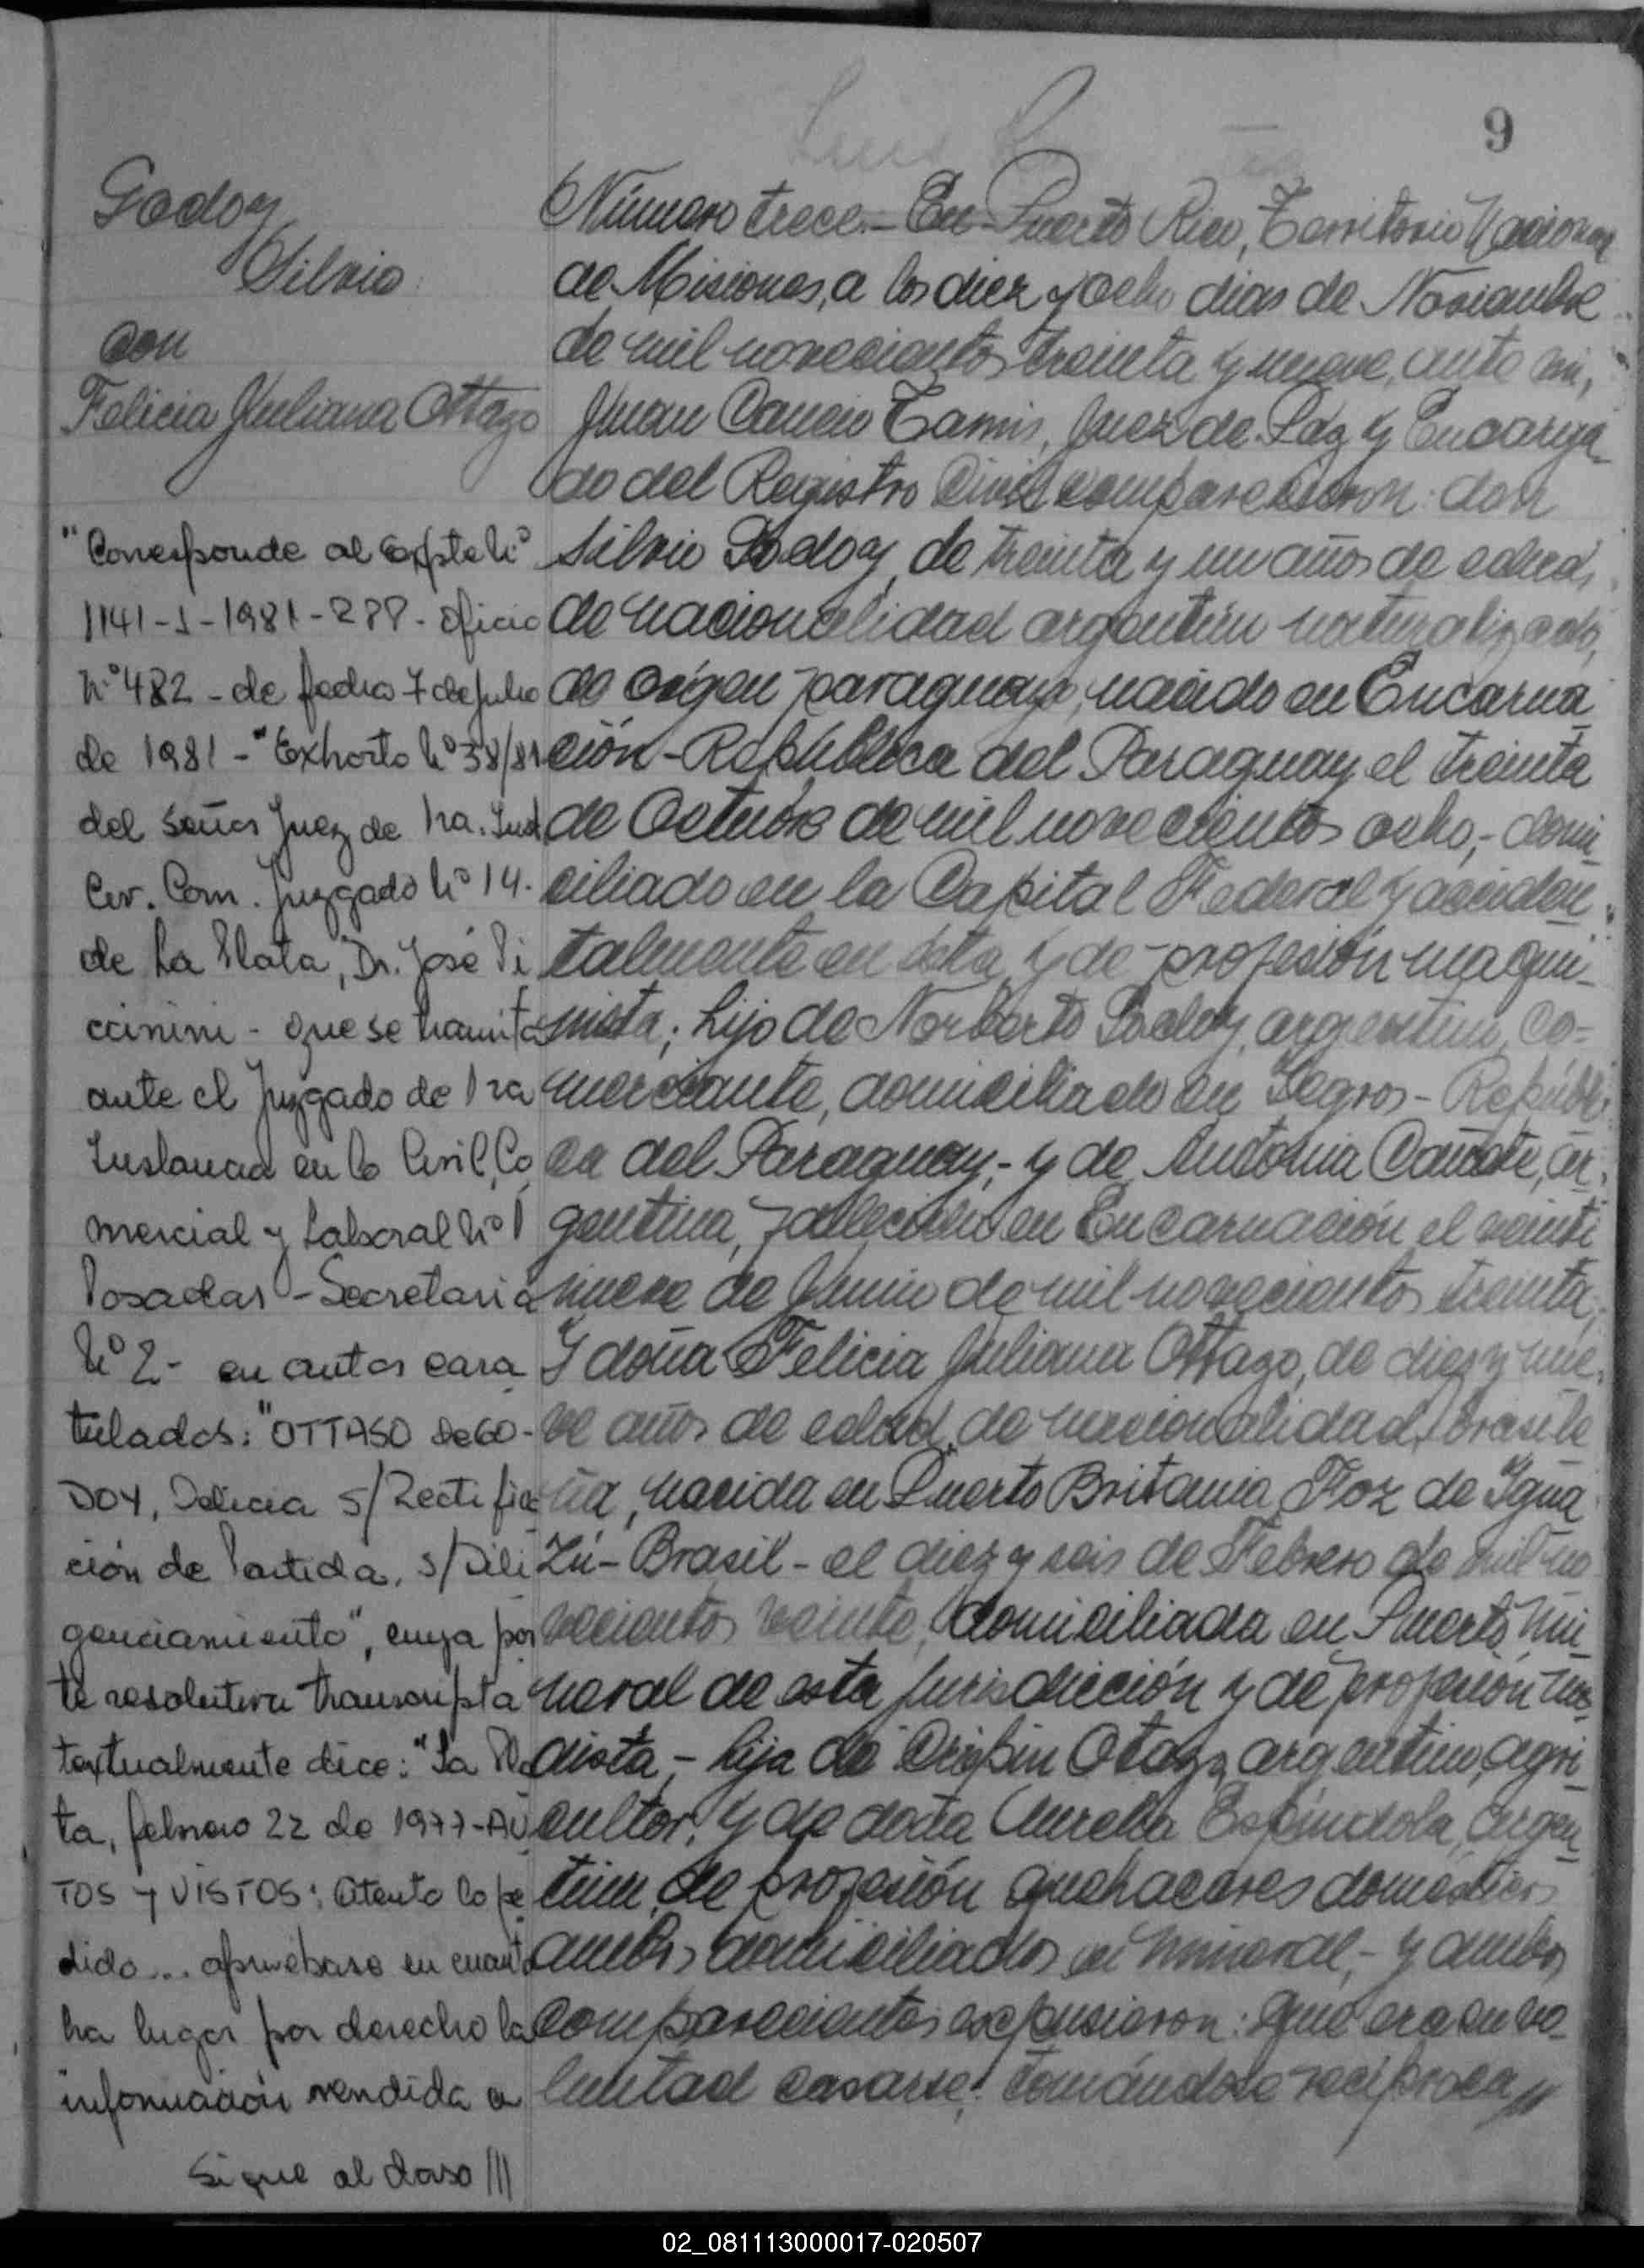 9
Godoy
Silvio
con
Felicia Juliana Ottazo
"Corresponde al Expte Nº
1141-J-1981-288- oficio
Nº 482 - de fecha 7 de julio
de 1981 - "Exhorto Nº 38/81
del señor Juez de 1ra. Inst
Civ. Com. Juzgado Nº 14.
de La Plata, Dr. José Pi
ccinini - que se tramita
ante el Juzgado de 1ra
Instancia en lo Civil, Co
mercial y Laboral Nº 1
Posadas - Secretaria
Nº 2 - en autos cara
tulados: "OTTASO de GO-
DOY, Delicia S/Rectifica
ción de Partida, s/Dili
genciamiento", cuya par
te resolutiva transcripta
textualmente dice: "La Pla
ta, febrero 22 de 1977-AU
TOS y VISTOS: Atento lo pe
dido... apruebase en cuanto
ha lugar por derecho la
información rendida a
Sigue al dorso ///
Número trece.- En Puerto Rico, Territorio Nacional
de Misiones, a los diez y ocho dias de Noviembre
de mil novecientos treinta y nueve, ante mi,
Juan Cancio Tamis, Juez de Paz y Encarga-
do del Registro Civil comparecieron: don
Silvio Godoy, de treinta y un años de edad,
de nacionalidad argentino naturalizado,
de orígen paraguayo, nacido en Encarna
ción - República del Paraguay el treinta
de Octubre de mil novecientos ocho,- domi-
ciliado en la Capital Federal y acciden-
talmente en ésta y de profesión maqui-
nista; hijo de Norberto Godoy, argentino, co-
merciante, domiciliado en - Repúbli
ca del Paraguay;- y de Antonia Cañete, ar-
gentina, fallecida en Encarnación el veinti
nueve de Junio de mil novecientos treinta,
Y doña Felicia Juliana Ottazo, de diez y nue-
ve años de edad, de nacionalidad brasile
ña, nacida en Puerto Britania, Foz de Igua
zú - Brasil - el diez y seis de Febrero de mil no
vecientos veinte, domiciliada en Puerto Mi
neral de esta jurisdicción y de profesión mo-
dista,- hija de Crispin Otazo, argentino, agri-
cultor, y de doña Aurelia Espíndola, argen-
tina, de profesión quehaceres domésticos
ambos domiciliados en Mineral,- y ambos
comparecientes expusieron: que era su vo-
luntad casarse, tomándose recíproca,,
02_081113000017-020507